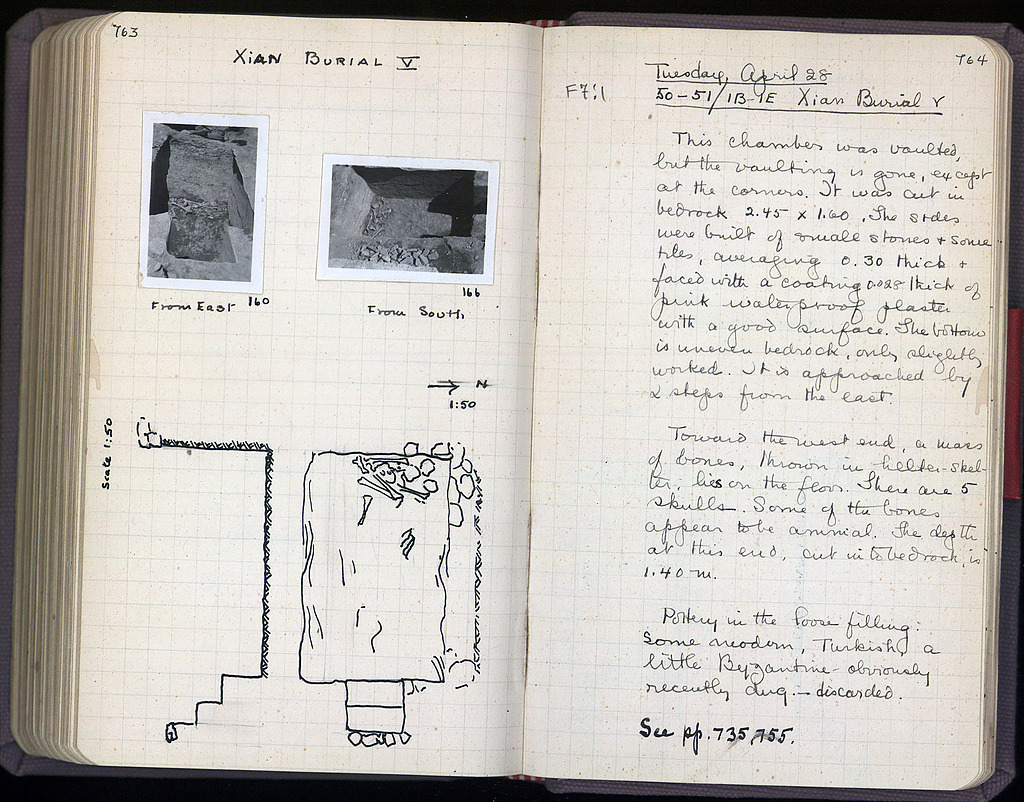 763
Xian Burial V
From East
160
166
From South
N
1:50
Scale 1:50
764
Tuesday, April 28
F7:1
50-51/1B-1E Xian Burial V
This chambers was vaulted,
but the vaulting is gone, except
at the corners. It was cut in
bedrock 2.45 x 1.60. The sides
were built of small stones + some
tiles, averaging 0.30 thick +
faced with a coating 0.028 thick of
pink waterproof plaster
with a good surface. The bottom
is uneven bedrock, only slightly
worked. It is approached by
2 steps from the east.
Toward the west end, a mass
of bones, thrown in helter-skel-
ter, lies on the floor. There are 5
skulls. Some of the bones
appear to be animal. The depth
at this end, cut into bedrock, is
1.40 m.
Pottery in the loose filling:
Some modern, Turkish, a
little Byzantine - obviously
recently dug. - discarded.
See pp. 735, 755.